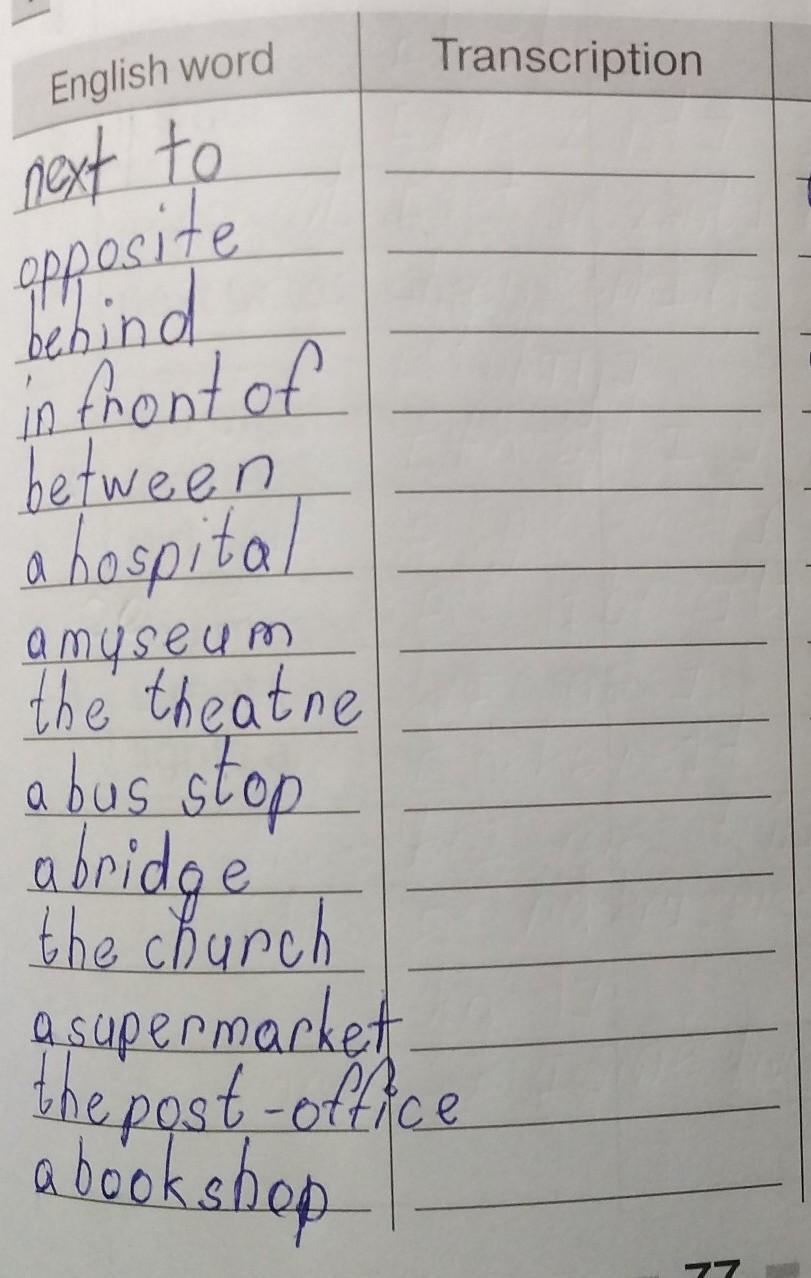 English word Transcription
next to
opposite
behind
in front of
between
a hospital
a myseum
the theatre
a bus stop
a bridge
the church
a supermarket
the post-office
a book shop
77